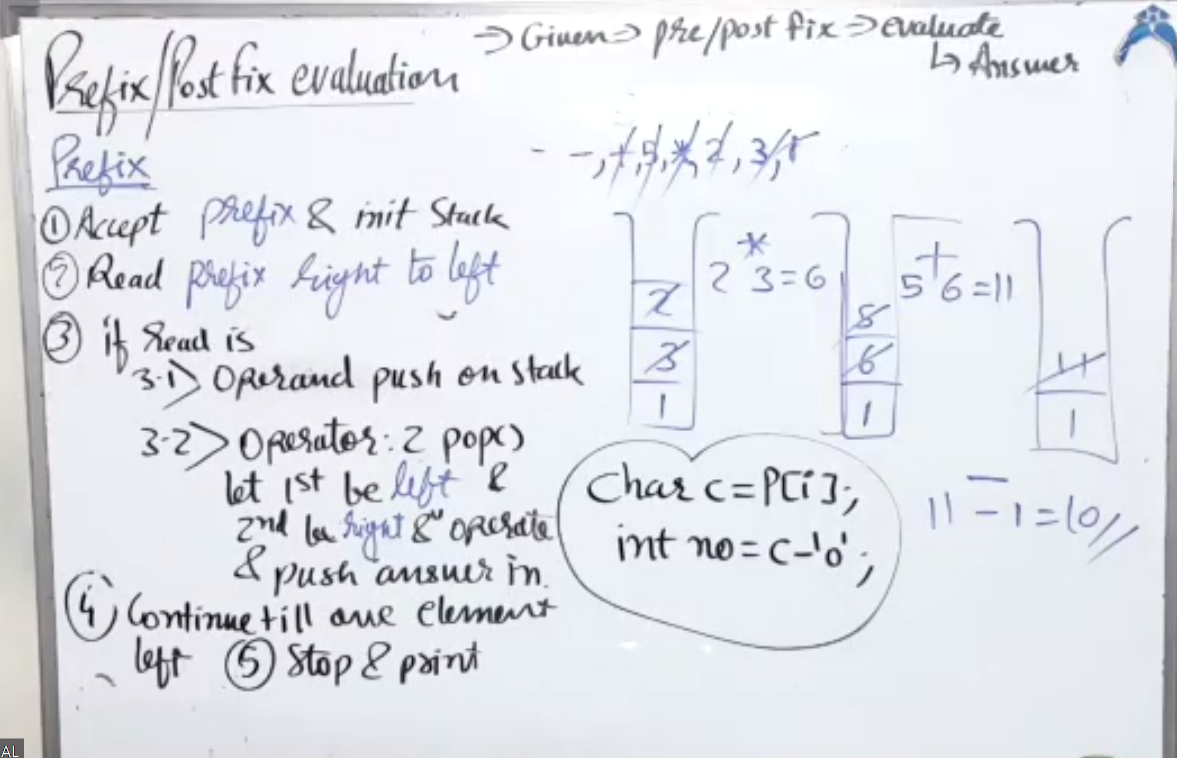 Prefix/Postfix evaluation
→ Given → pre/post fix → evaluate
↳ Answer
Prefix
① Accept prefix & init Stack
② Read prefix right to left
③ if read is
3.1> Operand push on stack
3.2> Operator: 2 pop()
let 1st be left &
2nd be right & operate
& push answer in.
④ Continue till one element
left ⑤ Stop & print
- -, +, 5, *, 2, 3, 1
2
3
1
2 * 3 = 6
5
6
1
5 + 6 = 11
11
1
11 - 1 = 10
Char c = P[i];
int no = c - '0';
AL